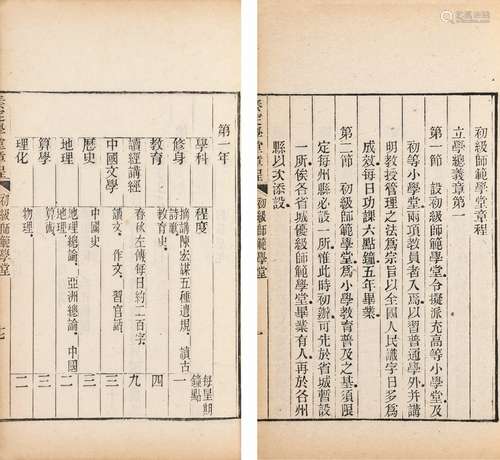 初級師範學堂章程
立學總義章第一
第一節　設初級師範學堂令擬派充高等小學堂及
初等小學堂兩項教員者入焉以習普通學外並講
明教授管理之法爲宗旨以全國人民識字日多爲
成效每日功課六點鐘五年畢業
第二節　初級師範學堂爲小學教育普及之基須限
定每州縣必設一所惟此時初辦可先於省城暫設
一所俟各省城優級師範學堂畢業有人再於各州
縣以次添設
初級師範學堂　一
第一年
學科　程度　每星期鐘點
修身　摘講陳宏謀五種遺規．讀古詩歌．　一
教育　教育史．　四
讀經講經　春秋左傳每日約二百字．　九
中國文學　讀文．作文．習官話．　三
歷史　中國史．　三
地理　地理總論．亞洲總論．中國地理．　二
算學　算術．　三
理化　物理．　二
初級師範學堂　七